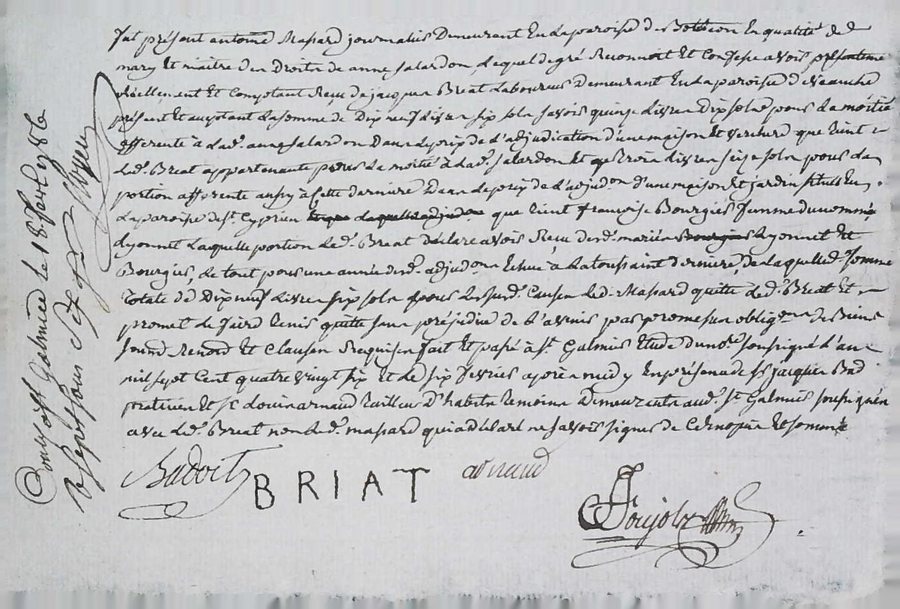 fut présent antoine Massard journalier Demeurant En la paroisse de Bothéon En qualité de
mary Et maitre des Droits de anne Salardon, Lequel de gré Reconnoit et Confesse avoir présentement
réellement et Comptant Reçu de jacques Breat Laboureur Demeurant En la paroisse de
présent et acceptant La somme de Dix neuf Livres six sols Savoir quinze Livres Dix sols pour La moitié
afferente à Lad. anne Salardon Dans Le prix de L'adjudication d'une maison Et verchere que tient
Led. Breat appartenante pour La moitié à Lad. Salardon Et trois Livres seize sols pour La
portion afferente aussy à Cette derniere Dans Le prix de L'adjudon D'une maison Et jardin situés En
La paroisse de st Cyprien que tient françoise Bourgier femme du nommé
Lyonnet Laquelle portion Led. Breat Déclare avoir Reçu desd. mariés Lyonnet Et
Bourgier, Le tout pour une année desd. adjudons Echue à La toussaint derniere, de Laquelle somme
totale de Dix neuf Livres six sols pour Les susd. Causes Led. Massard quitte Led. Breat Et
promet Le faire tenir quitte sans préjudice de L'avenir par promesses obligons de Biens
soumd Renond Et Clauses Requises fait Et passé à St. Galmier Etude du nore soussigné L'an
mil sept Cent quatre vingt six Et Le six fevrier après midy En présence de Sr jacques
praticien Et Sr arnaud tailleur D'habits Demeurants aud. St Galmier soussignés
avec Led. Breat non Led. Massard qui a déclaré ne savoir signer de Ce Enquis Et sommé
Badoit BRIAT arnaud
Poujol
Controllé à St Galmier le 18 fev. 1786
Reçu sept sous six drs